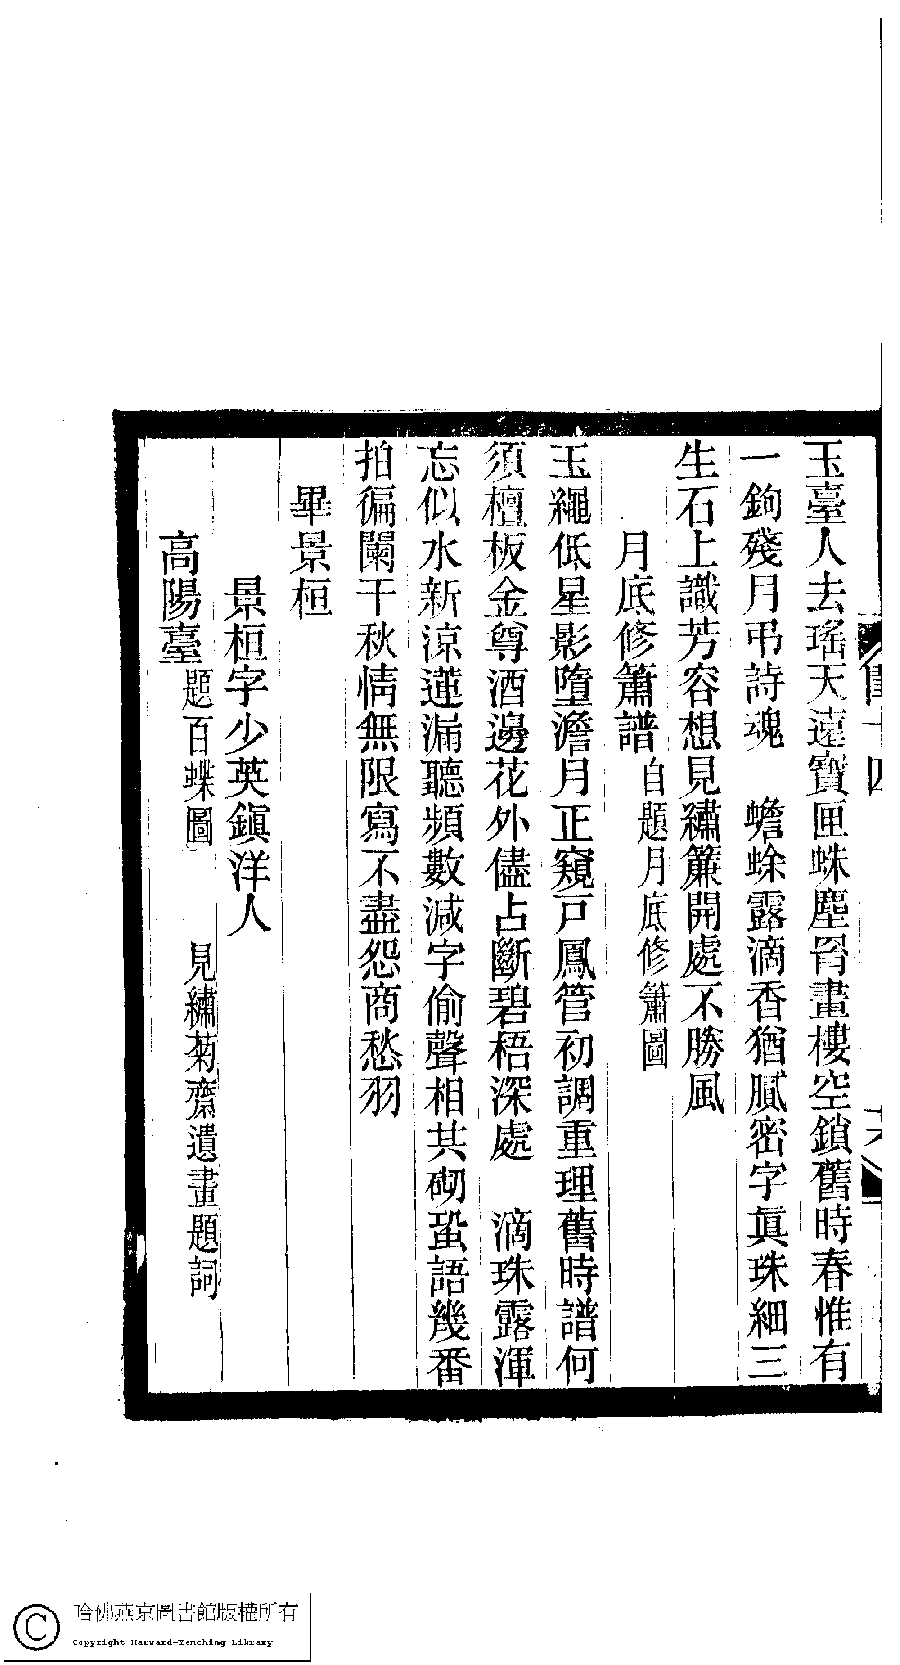 玉臺人去瑤天遠寶匣蛛塵罥畫樓空鎖舊時春惟有
一鉤殘月弔詩魂　蟾蜍露滴香猶膩密字眞珠細三
生石上識芳容想見繡簾開處不勝風
月底修簫譜自題月底修簫圖
玉繩低星影墮澹月正窺戸鳳管初調重理舊時譜何
須檀板金尊酒邊花外儘占斷碧梧深處　滴珠露渾
忘似水新涼蓮漏聽頻數減字偷聲相共砌蛩語幾番
拍徧闌干秋情無限寫不盡怨商愁羽
畢景桓
景桓字少英鎭洋人
高陽臺題百蝶圖　見繡菊齋遺畫題詞
哈佛燕京圖書館版權所有
Copyright Harvard-Yenching Library